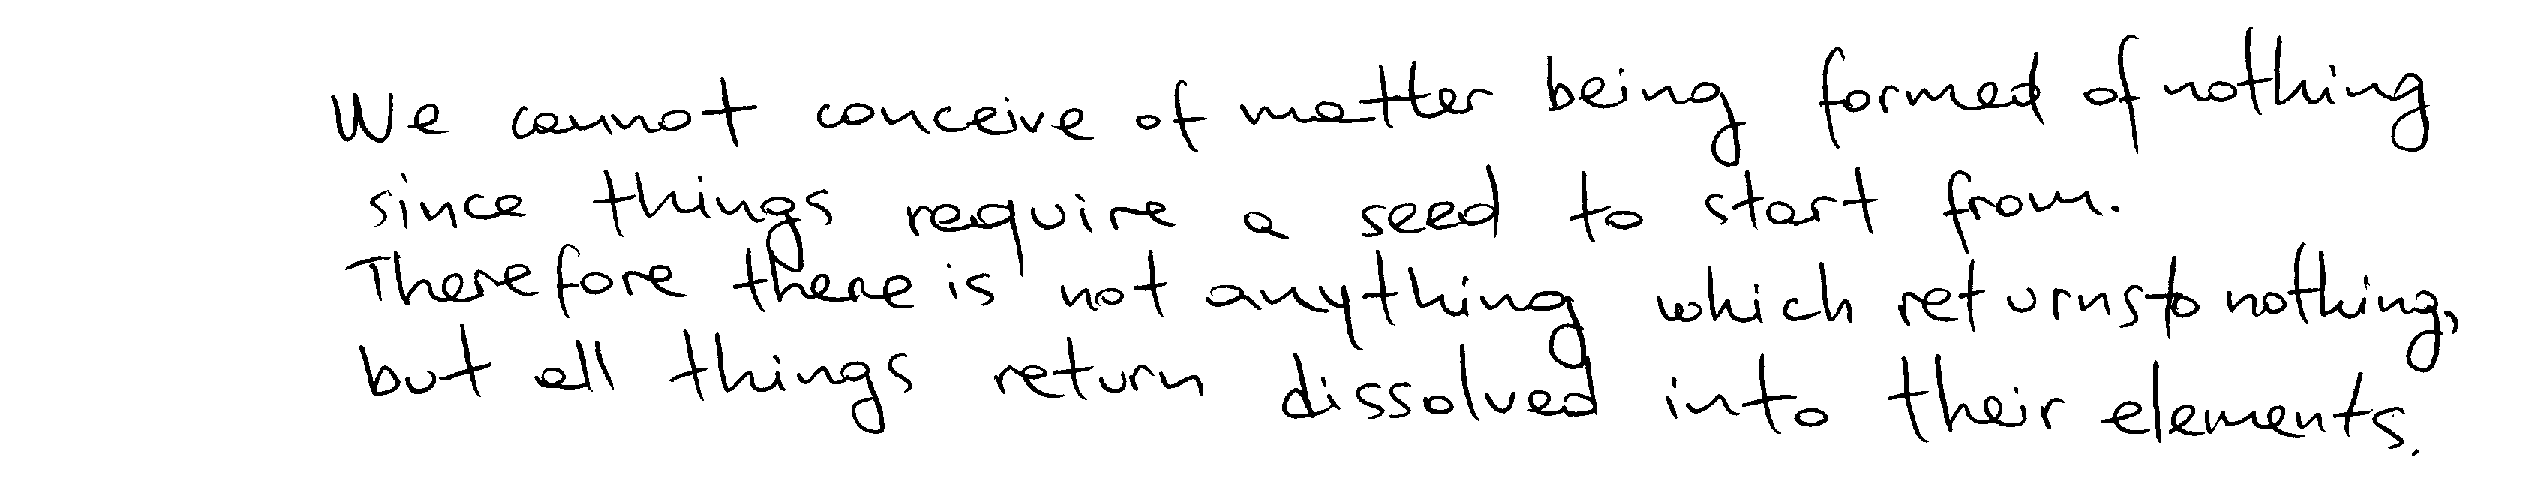 We cannot conceive of matter being formed of nothing
since things require a seed to start from.
Therefore there is not anything which returns to nothing,
but all things return dissolved into their elements.